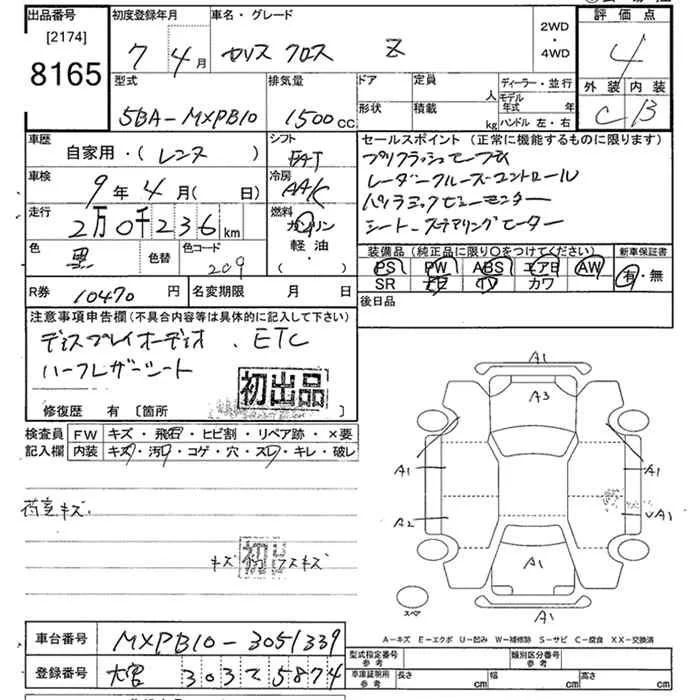 出品番号
[2174]
8165
初度登録年月
7 4月
車名・グレード
ヤリス クロス Z
2WD
・
4WD
評価点
4
外装 内装
C B
型式
5BA-MXPB10
排気量
1500cc
ドア
形状
定員
人
積載
kg
ディーラー・並行
モデル年式 年
ハンドル 左・右
車歴
自家用・(レンタ)
シフト
FAT
車検
9年4月( 日)
冷房
AAC
走行
2万0千236km
燃料
ガソリン
軽油
( ・ )
色
黒
色替
色コード
209
セールスポイント (正常に機能するものに限ります)
プリクラッシュセーフティ
レーダークルーズコントロール
パノラミックビューモニター
シート、ステアリングヒーター
装備品 (純正品に限り○をつけてください)
新車保証書
PS PW ABS エアB AW
有・無
SR ナビ TV カワ
R券
10470円
名変期限 月 日
後日品
注意事項申告欄 (不具合内容等は具体的に記入して下さい)
ディスプレイオーディオ、ETC
ハーフレザーシート
初出品
修復歴 有 [箇所 ]
検査員
記入欄
FW キズ・飛石・ヒビ割・リペア跡・×要
内装 キズ・汚レ・コゲ・穴・スレ・キレ・破レ
荷室キズ.
キズ
スキズ
A1
A3
A1
A1
A2
A1
A1
A1
スペア
A-キズ E-エクボ U-凹み W-補修跡 S-サビ C-腐食 XX-交換済
車台番号
MXPB10-3051339
登録番号
大宮 303 て 5874
型式指定番号
参考
類別区分番号
参考
車庫証明用
参考
長さ cm
幅 cm
高さ cm